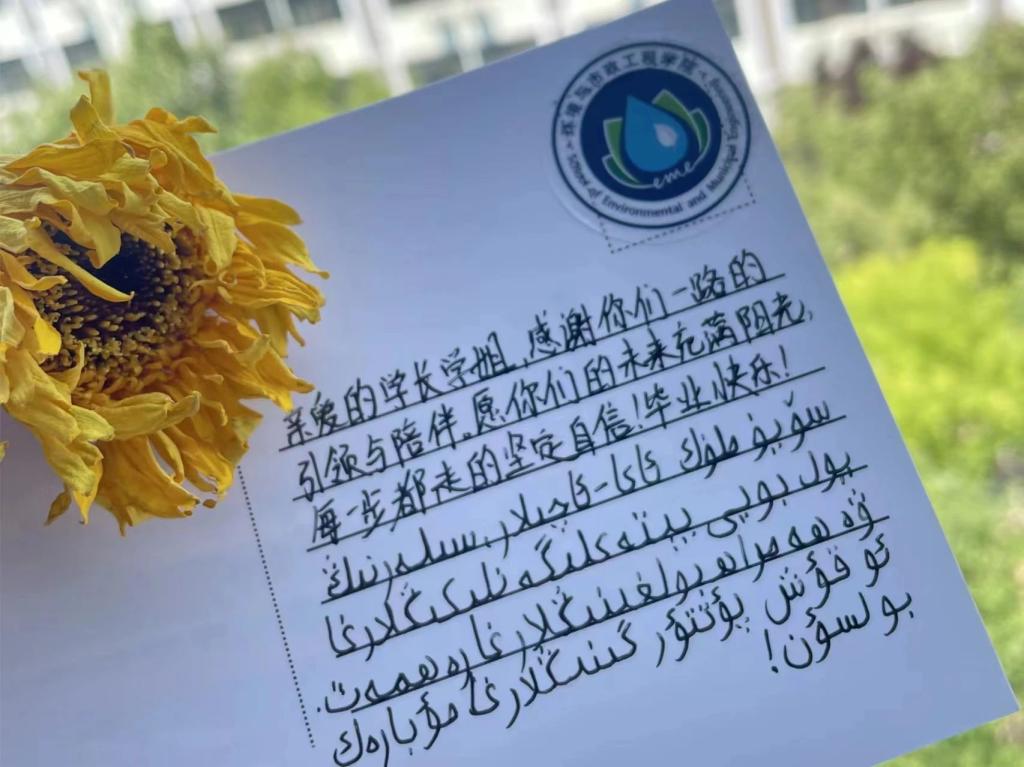 环境与市政工程学院
School of Environmental and Municipal Engineering
eme
亲爱的学长学姐,感谢你们一路的
引领与陪伴,愿你们的未来充满阳光,
每一步都走的坚定自信!毕业快乐!
سۆيۈملۈك ئاكا-ئاچىلار، سىلەرنىڭ
يول بويى يېتەكلىگەنلىكىڭلارغا
ۋە ھەمراھ بولغىنىڭلارغا رەھمەت.
ئوقۇش پۈتتۈرگىنىڭلارغا مۇبارەك
بولسۇن!